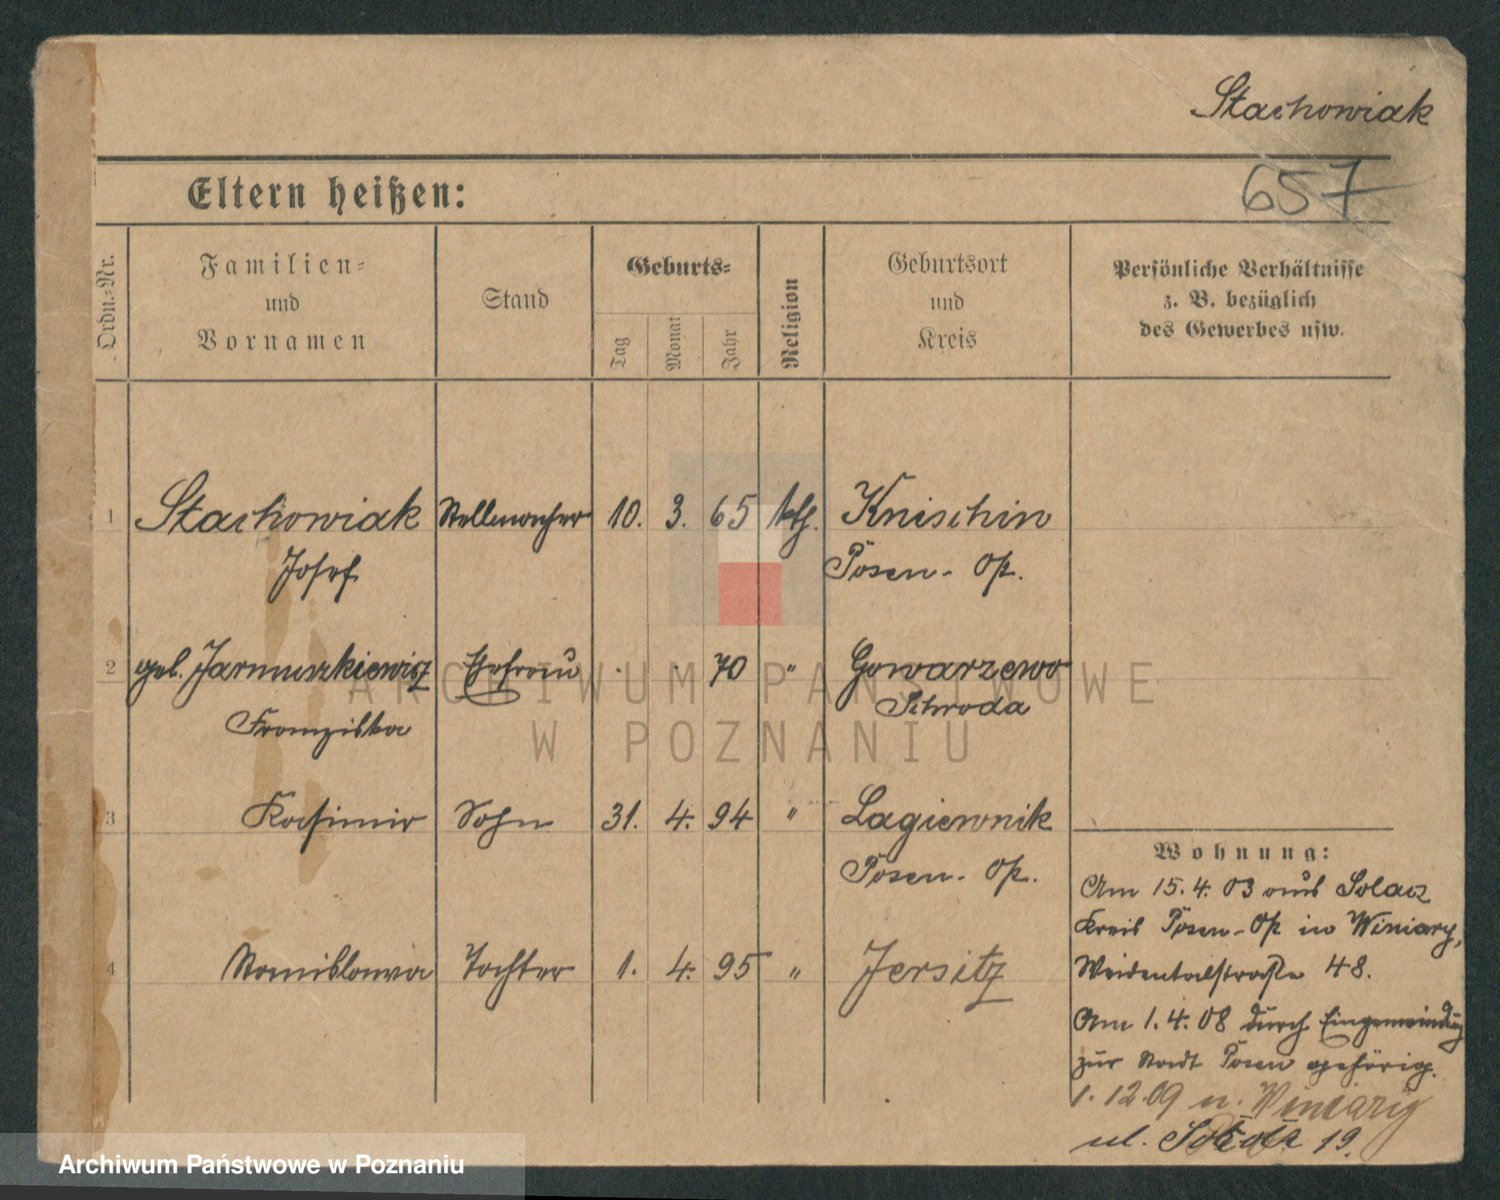 Stachowiak
Eltern heißen:
657
Ordn.-Nr.
Familien-
und
Vornamen
Stand
Geburts-
Tag
Monat
Jahr
Religion
Geburtsort
und
Kreis
Persönliche Verhältnisse
z. B. bezüglich
des Gewerbes usw.
1 Stachowiak Stellmacher 10. 3. 65 kth. Knischin
Josef Posen-Op.
2 geb. Jarmuszkiewicz Ehefrau . . 70 " Gowarzewo
Franziska Schroda
3 Kasimir Sohn 31. 4. 94 " Lagiewnik
Posen-Op.
4 Stanislawa Tochter 1. 4. 95 " Jersitz
Wohnung:
Am 15.4.03 aus Solacz
Kreis Posen-Op in Winiary,
Weidentalstraße 48.
Am 1.4.08 durch Eingemeindung
zur Stadt Posen gehörig.
1.12.09 n. Winiary
ul. 19.
ARCHIWUM PAŃSTWOWE
W POZNANIU
Archiwum Państwowe w Poznaniu